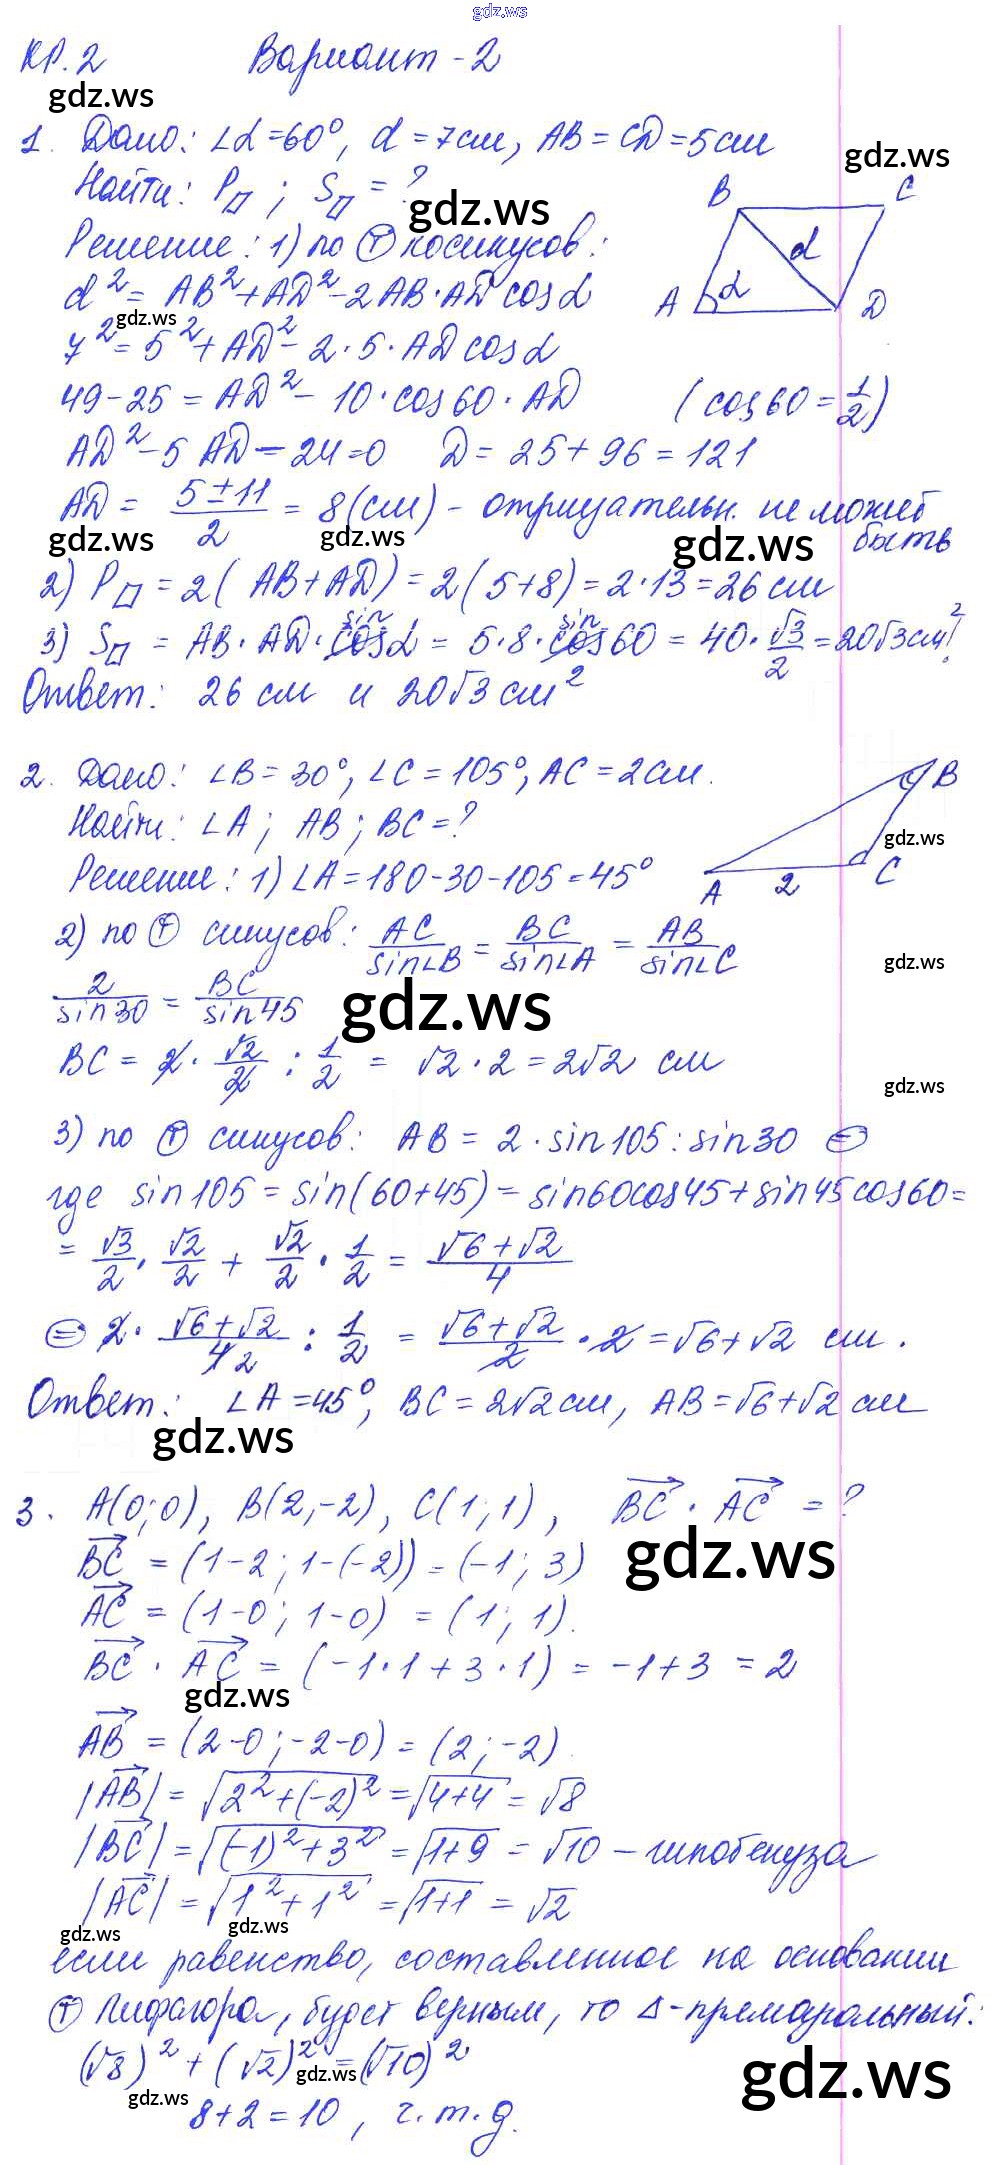 gdz.ws
КР.2 Вариант-2
gdz.ws
1. Дано: ∠α=60°, d=7см, AB=CD=5см
gdz.ws
Найти: P▱; S▱=?
gdz.ws
B C
Решение: 1) по Ⓣ косинусов:
d
d²=AB²+AD²-2AB·AD cosα
A α D
gdz.ws
7²=5²+AD²-2·5·AD cosα
49-25=AD²-10·cos60·AD (cos60=1/2)
AD²-5AD-24=0 D=25+96=121
AD=(5±11)/2=8(см) - отрицательн. не может быть
gdz.ws gdz.ws gdz.ws
2) P▱=2(AB+AD)=2(5+8)=2·13=26см
3) S▱=AB·AD·sin α=5·8·sin 60=40·√3/2=20√3см²!
Ответ: 26см и 20√3см²
2. Дано: ∠B=30°, ∠C=105°, AC=2см.
B
Найти: ∠A; AB; BC=?
gdz.ws
Решение: 1) ∠A=180-30-105=45°
A 2 C
2) по Ⓣ синусов: AC/sin∠B=BC/sin∠A=AB/sin∠C
gdz.ws
2/sin30=BC/sin45
gdz.ws
BC=2·√2/2:1/2=√2·2=2√2 см
gdz.ws
3) по Ⓣ синусов: AB=2·sin105:sin30 ⊜
где sin105=sin(60+45)=sin60cos45+sin45cos60=
=√3/2·√2/2+√2/2·1/2=(√6+√2)/4
⊜ 2·(√6+√2)/4 2:1/2=(√6+√2)/2·2=√6+√2 см.
Ответ: ∠A=45°, BC=2√2см, AB=√6+√2см
gdz.ws
3. A(0;0), B(2;-2), C(1;1), BC·AC=?
BC=(1-2;1-(-2))=(-1;3)
gdz.ws
AC=(1-0;1-0)=(1;1).
BC·AC=(-1·1+3·1)=-1+3=2
gdz.ws
AB=(2-0;-2-0)=(2;-2).
|AB|=√(2²+(-2)²)=√(4+4)=√8
|BC|=√((-1)²+3²)=√(1+9)=√10 - гипотенуза
|AC|=√(1²+1²)=√(1+1)=√2
gdz.ws gdz.ws
если равенство, составленное на основании
Ⓣ Пифагора, будет верным, то Δ-прямоугольный:
(√8)²+(√2)²=(√10)²
gdz.ws
gdz.ws
gdz.ws
8+2=10, ч.т.д.